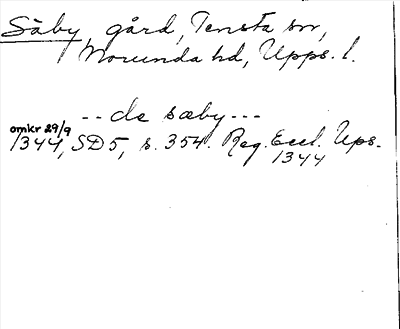 Säby, gård, Tensta sn,
Norunda hd, Upps. l.
-- de sæby ---
omkr 29/9
1344, SD5, s. 354. Reg. Eccl. Ups.
1344